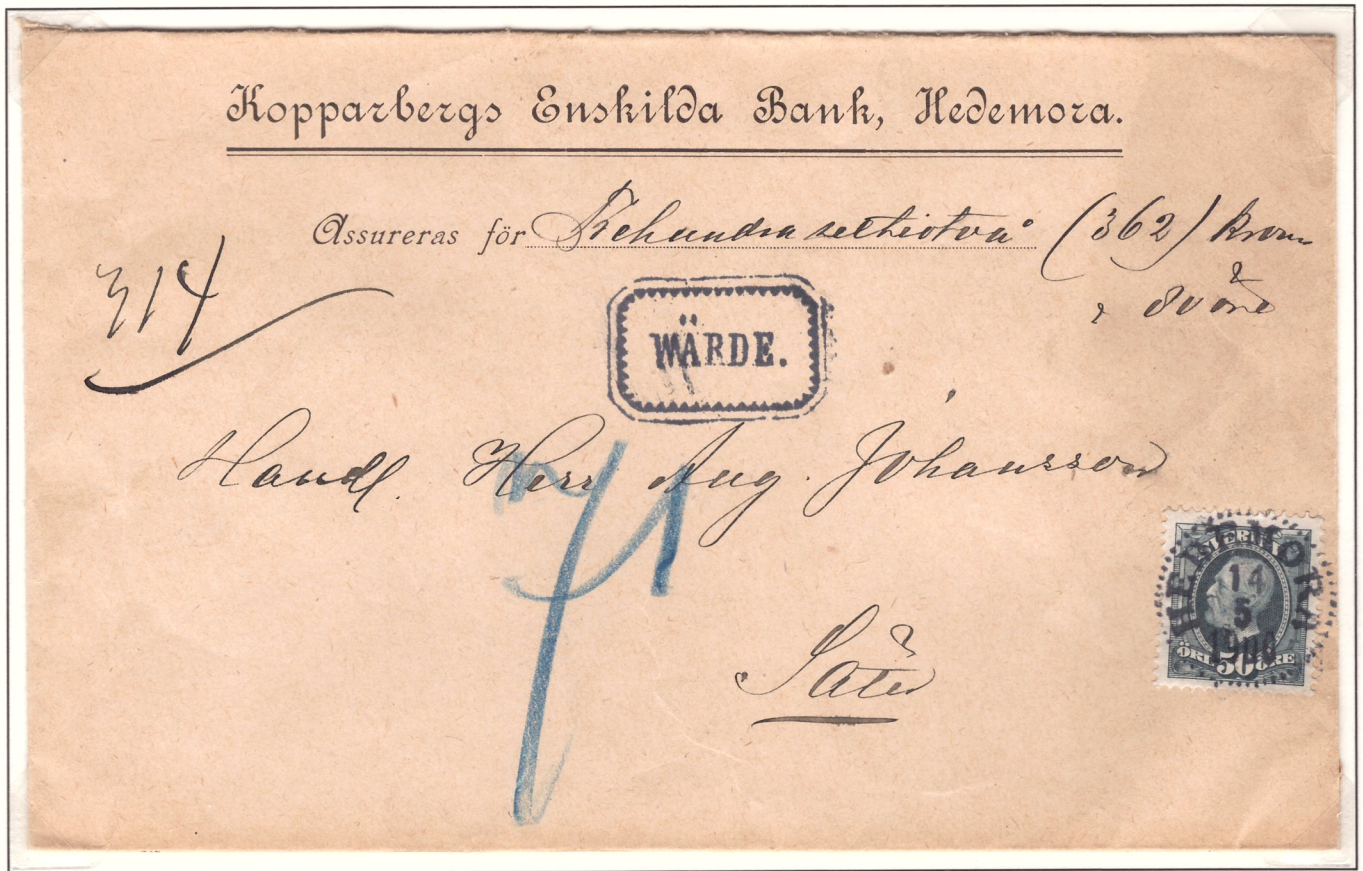 Kopparbergs Enskilda Bank, Hedemora.
Assureras för Trehundrasextiotvå (362) kron
80 öre
WÄRDE.
Handl. Herr Aug. Johansson
Säter
HEDEMORA
14
5
1900
SVERIGE
ÖRE 50 ÖRE